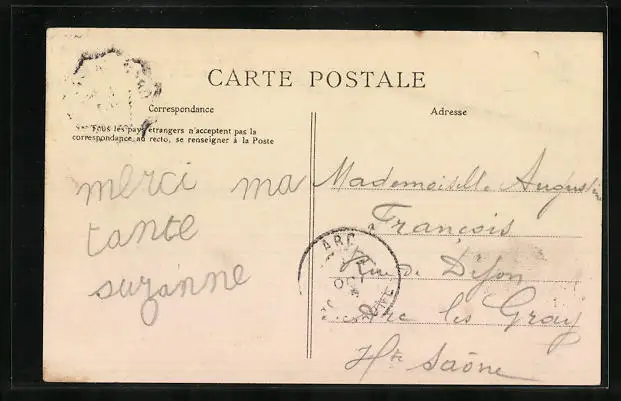 CARTE POSTALE
Correspondance
Tous les pays étrangers n'acceptent pas la
correspondance au recto, se renseigner à la Poste
merci ma
tante
suzanne
Adresse
Mademoiselle Augustine
François
Rue de Dijon
les Gray
Hte Saône
ARC